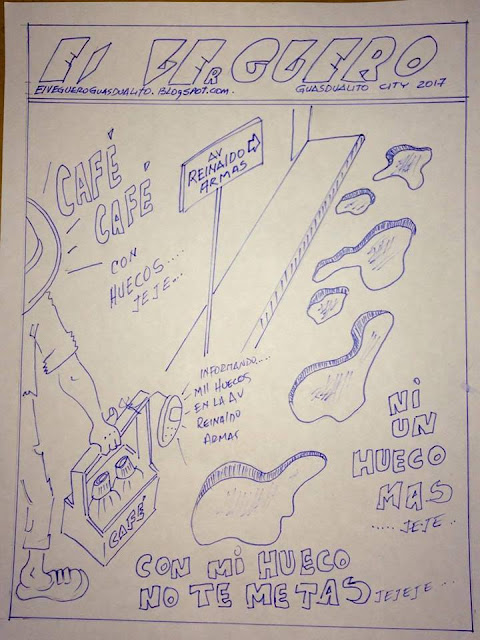 El VERGUERO
ElVEGUEROGUASDUALITO.BlOgSPOT.COM.
GUASDUALITO CITY 2017
CAFÉ
CAFÉ
CON
HUECOS.....
JEJE...
AV
REINAlDO
ARMAS
INFORMANDO....
MIl HUECOS
EN LA AV
REINAlDO
ARMAS
CAFÉ
NI
UN
HUECO
MAS
..... JEJE..
CON MI HUECO
NO TE METAS JEJEJE...